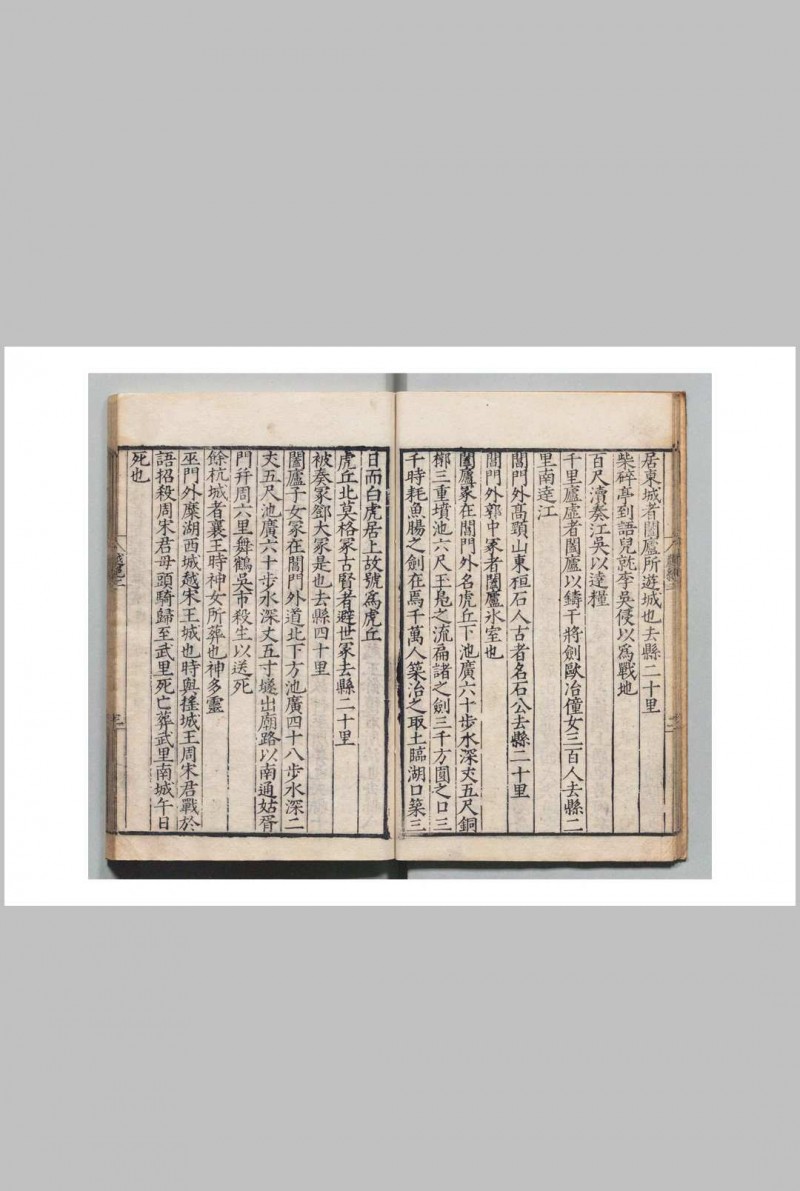 居東城者闔廬所遊城也去縣二十里
柴碎亭到語兒就李吳侵以爲戰地
百尺瀆奏江吳以達糧
千里廬虛者闔廬以鑄干將劍歐冶僮女三百人去縣二
里南達江
閶門外高頸山東桓石人古者名石公去縣二十里
閶門外郭中冢者闔廬氷室也
闔廬冢在閶門外名虎丘下池廣六十步水深丈五尺銅
槨三重墳池六尺玉鳧之流扁諸之劍三千方圓之口三
千時耗魚腸之劍在焉千萬人築治之取土臨湖口築三
日而白虎居上故號爲虎丘
虎丘北莫格冢古賢者避世冢去縣二十里
被奏冢鄧大冢是也去縣四十里
闔廬子女冢在閶門外道北下方池廣四十八步水深二
丈五尺池廣六十步水深丈五寸墬出廟路以南通姑胥
門幷周六里舞鶴吳市殺生以送死
餘杭城者襄王時神女所葬也神多靈
巫門外糜湖西城越宋王城也時與搖城王周宋君戰於
語招殺周宋君毋頭騎歸至武里死亡葬武里南城午日
死也